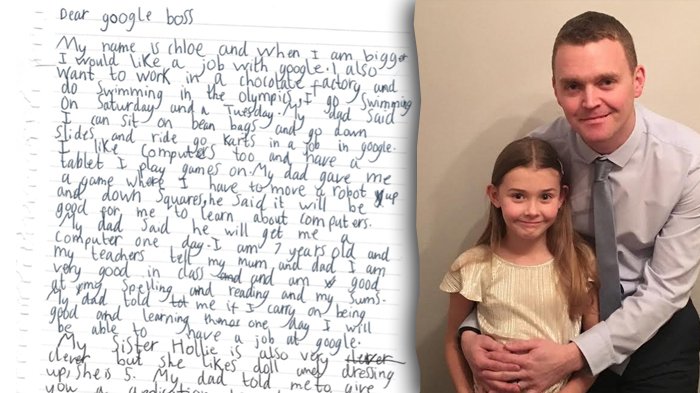 Dear google boss
My name is chloe and when I am bigger
I would like a job with google. I also
want to work in a chocolate factory and
do swimming in the olympics, I go swimming
on Saturday and a Tuesday. My dad said
I can sit on bean bags and go down
slides and ride go karts in a job in google.
I like computers too and have a
tablet I play games on. My dad gave me
a game where I have to move a robot up
and down squares, he said it will be
good for me to learn about computers.
My dad said he will get me a
computer one day. I am 7 years old and
my teachers tell my mum and dad I am
very good in class and am good
at my spelling and reading and my sums.
My dad told me if I carry on being
good and learning then one day I will
be able to have a job at google.
My Sister Hollie is also very
clever but she likes doll and dressing
up, she is 5. My dad told me to give
you a application